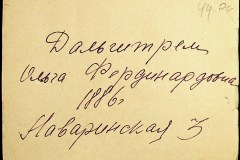 Дальштрем
Ольга Фердинардовна
1886г
Наваринская 3